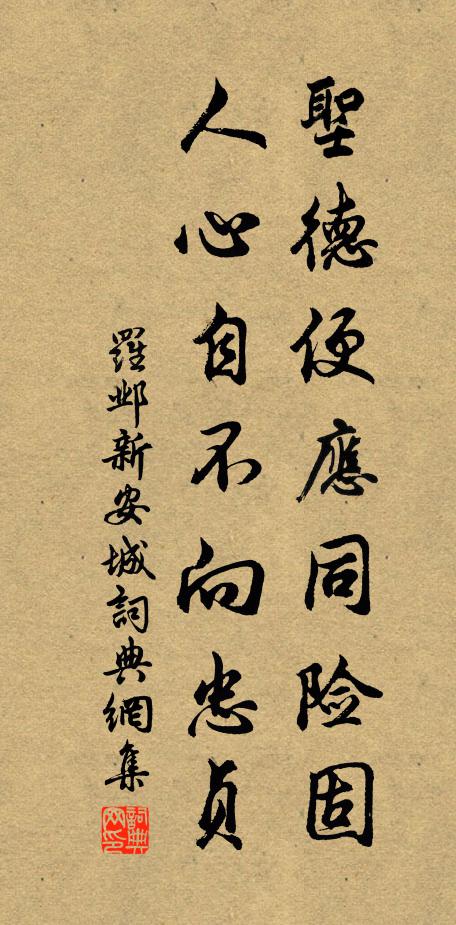 聖德便應同险固
人心自不向忠貞
羅邺新安城詞典網集
詞典网印